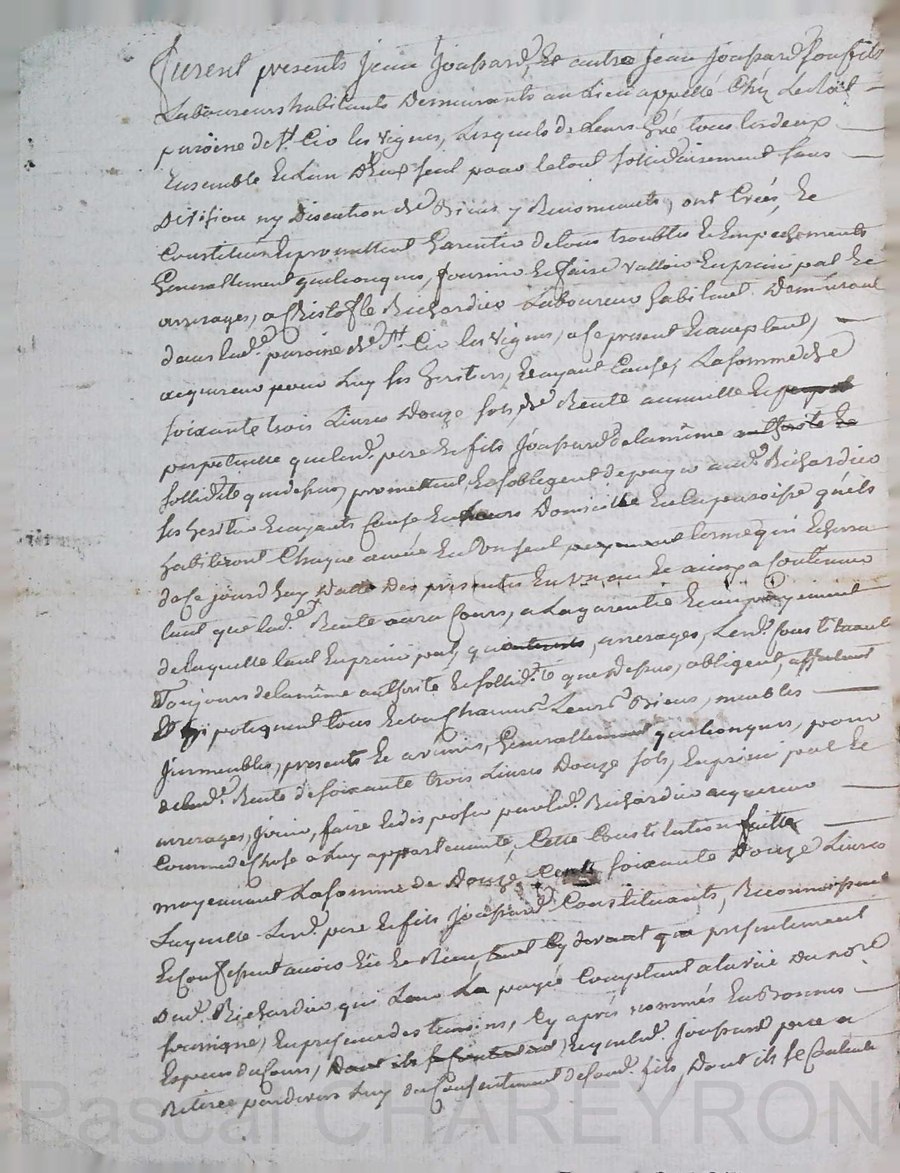 furent presents jean joussard, et autre jean joussard son fils
Laboureurs habitants Demeurants au Lieu appellé Chez
paroisse de St. Cio les vignes, Lesquels de Leurs Gré tous les deux
Ensemble et Lun D'Eux seul pour le tout sollidairement sans
Division ny Discution de Biens y Renonceants, ont Créés, Et
Constitués Et promettent Garentie de tous troubles Et Empechements
Generallement quelconques, fournir Et faire valloir En principal Et
arrerages, a Christofle Richardier Laboureur habitant Demeurant
dans lad.e paroisse de St. Cio les vignes, a ce present Et acceptant,
acquereur pour Luy ses heritiers, Et ayant Cause, La somme de
soixante trois Livres Douze sols, de Rente annuelle Et
perpetuelle que Led. pere Et fils joussard de la même
sollidité que dessus, promettent, Et sobligent de payer aud. Richardier
ses heritiers Et ayants Cause En Domicille En la paroisse quils
habiteront Chaque année En Un seul payement terme qui Echerra
de Ce jourdhuy Datte Des presentes En un an Et ainsy a Continuer
tant que lad.e Rente aura Cours, a La garentie Et au payement
de laquelle tant En principal, que arrerages, Les d. Constituants
Toujours de la même authorité Et sollidité que dessus, obligent, affectent
Et hipotequent tous Et un Chacuns Leurs Biens, meubles
jmmeubles, presents Et avenir, Generallement quelconques, pour
de lad. Rente de soixante trois Livres Douze sols, En principal Et
arrerages, jouir, faire Et disposer par led. Richardier acquereur
Comme de Chose a Luy appartenante, Cette Constitution faitte
moyennant La somme de Douze Cents soixante Douze Livres
Laquelle Les d. pere Et fils joussard Constituants, Reconnoissent
Et Confessent avoir Eüe Et Receu tant Cy devant que presentement
Dud. Richardier qui Leur La payée Comptant a la vüe Du no.re
soussigné, En presence des temoins, Cy après nommés En Bonnes
Especes du Cours, Dont ils Joussard pere a
Retirée par devers Luy du Consentement de sond. fils, Dont ils se Contente
Pascal CHAREYRON